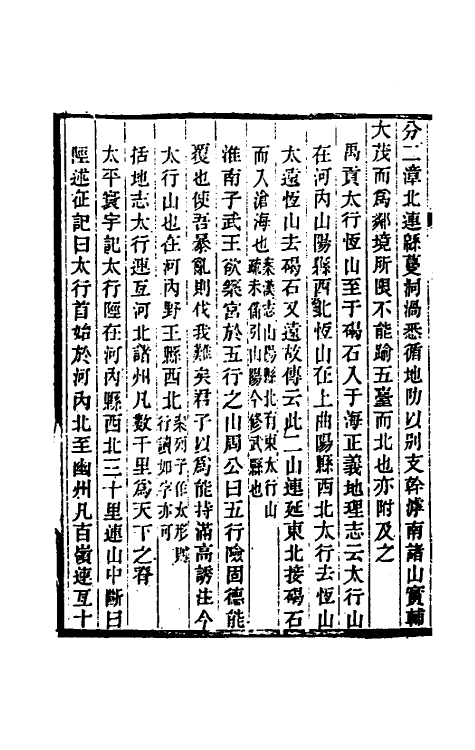 分二漳北連緜蔓洞渦悉循地阞以別支幹滹南諸山實輔
大茂而爲鄰境所限不能踰五臺而北也亦附及之
禹貢太行恆山至于碣石入于海正義地理志云太行山
在河內山陽縣西北恆山在上曲陽縣西北太行去恆山
太遠恆山去碣石又遠故傳云此二山連延東北接碣石
而入滄海也案漢志山陽縣北有東太行山疏未備引山陽今修武縣也
淮南子武王欲築宮於五行之山周公曰五行險固德能
覆也使吾暴亂則伐我難矣君子以爲能持滿高誘注今
太行山也在河內野王縣西北案列子作太形則行讀如字亦可
括地志太行連亙河北諸州凡數千里爲天下之脊
太平寰宇記太行陘在河內縣西北三十里連山中斷曰
陘述征記曰太行首始於河內北至幽州凡百嶺連亙十